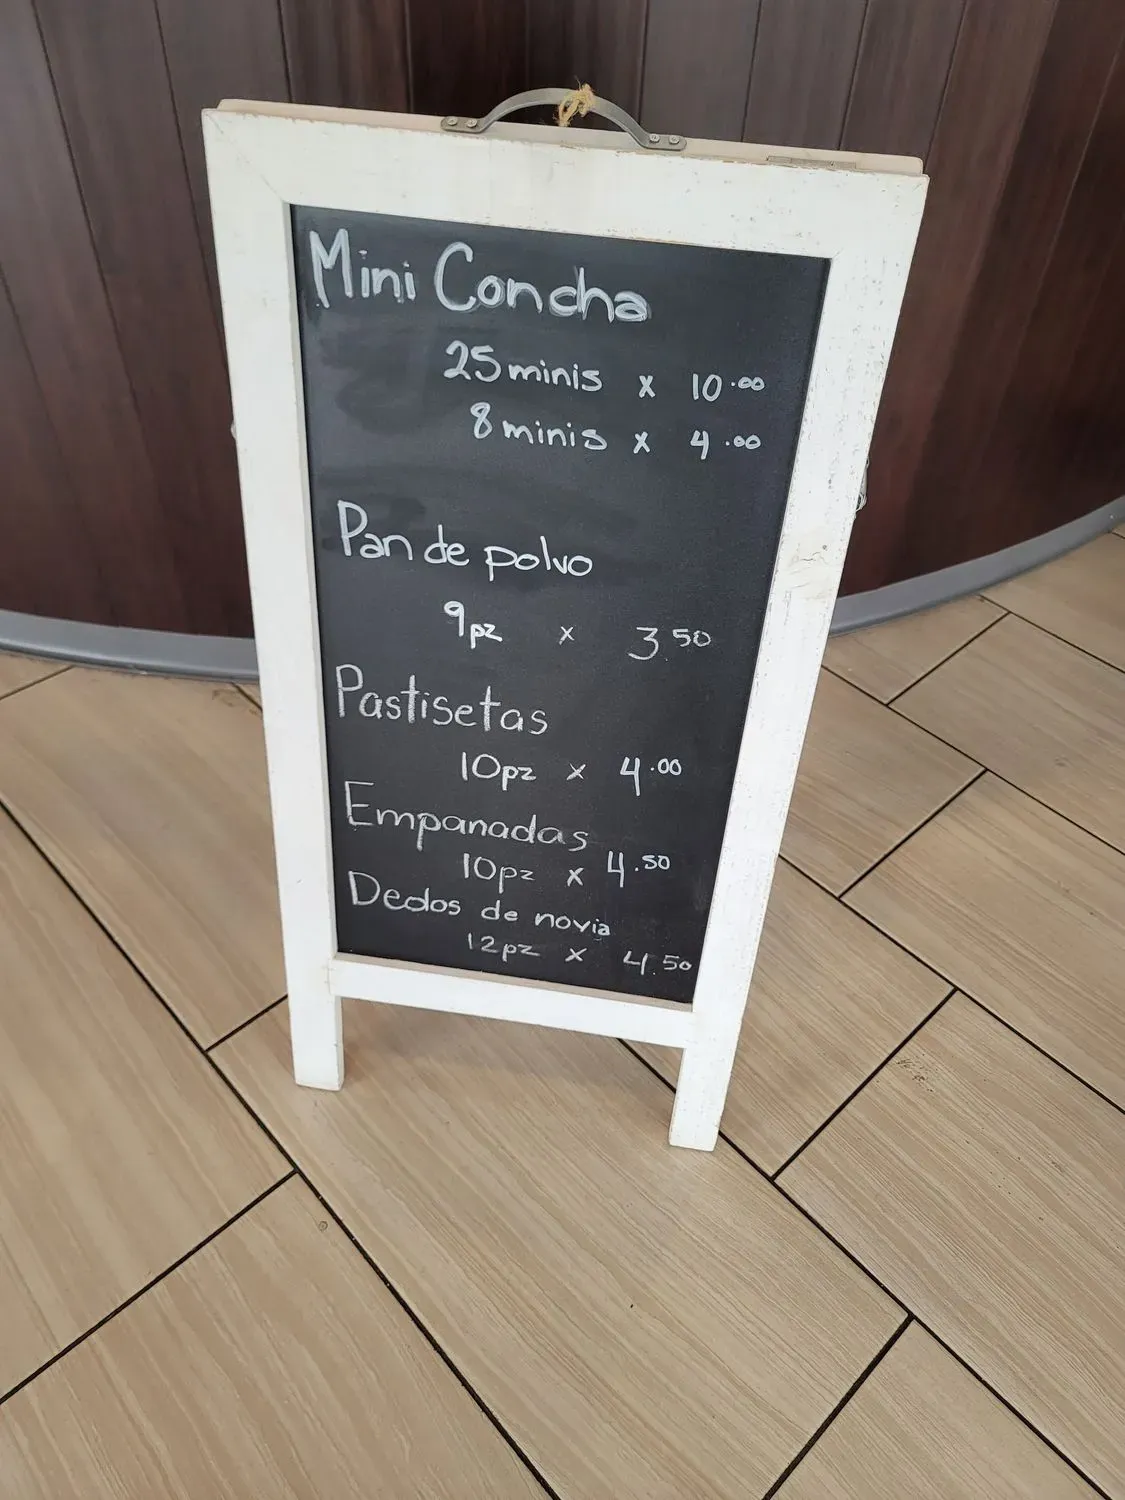 Mini Concha
25 minis x 10.00
8 minis x 4.00
Pan de polvo
9pz x 3 50
Pastisetas
10pz x 4.00
Empanadas
10pz x 4.50
Dedos de novia
12pz x 4.50